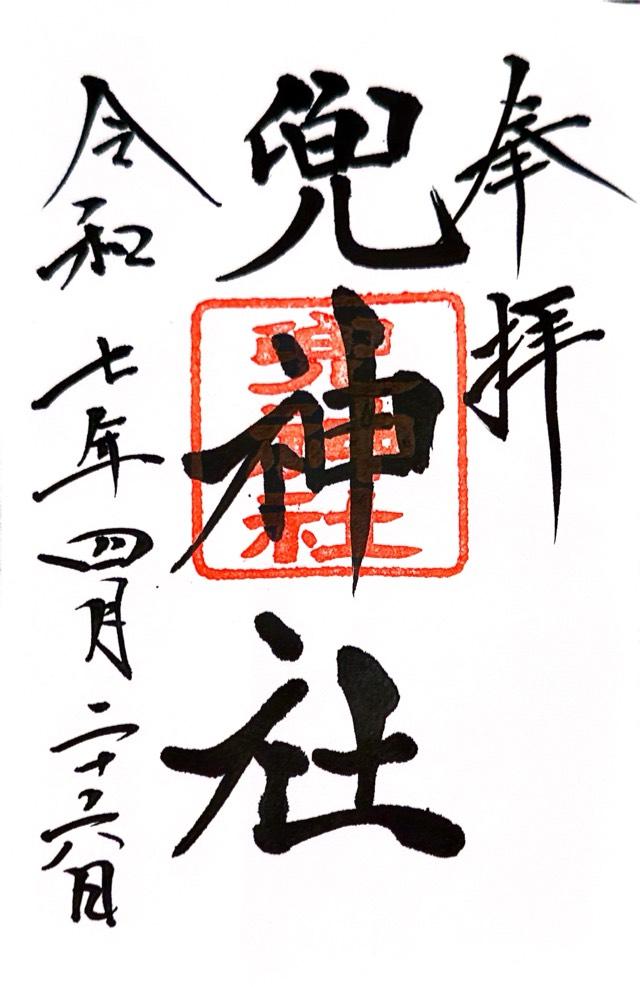 奉拝
兜神社
兜神社
令和七年四月二十六日